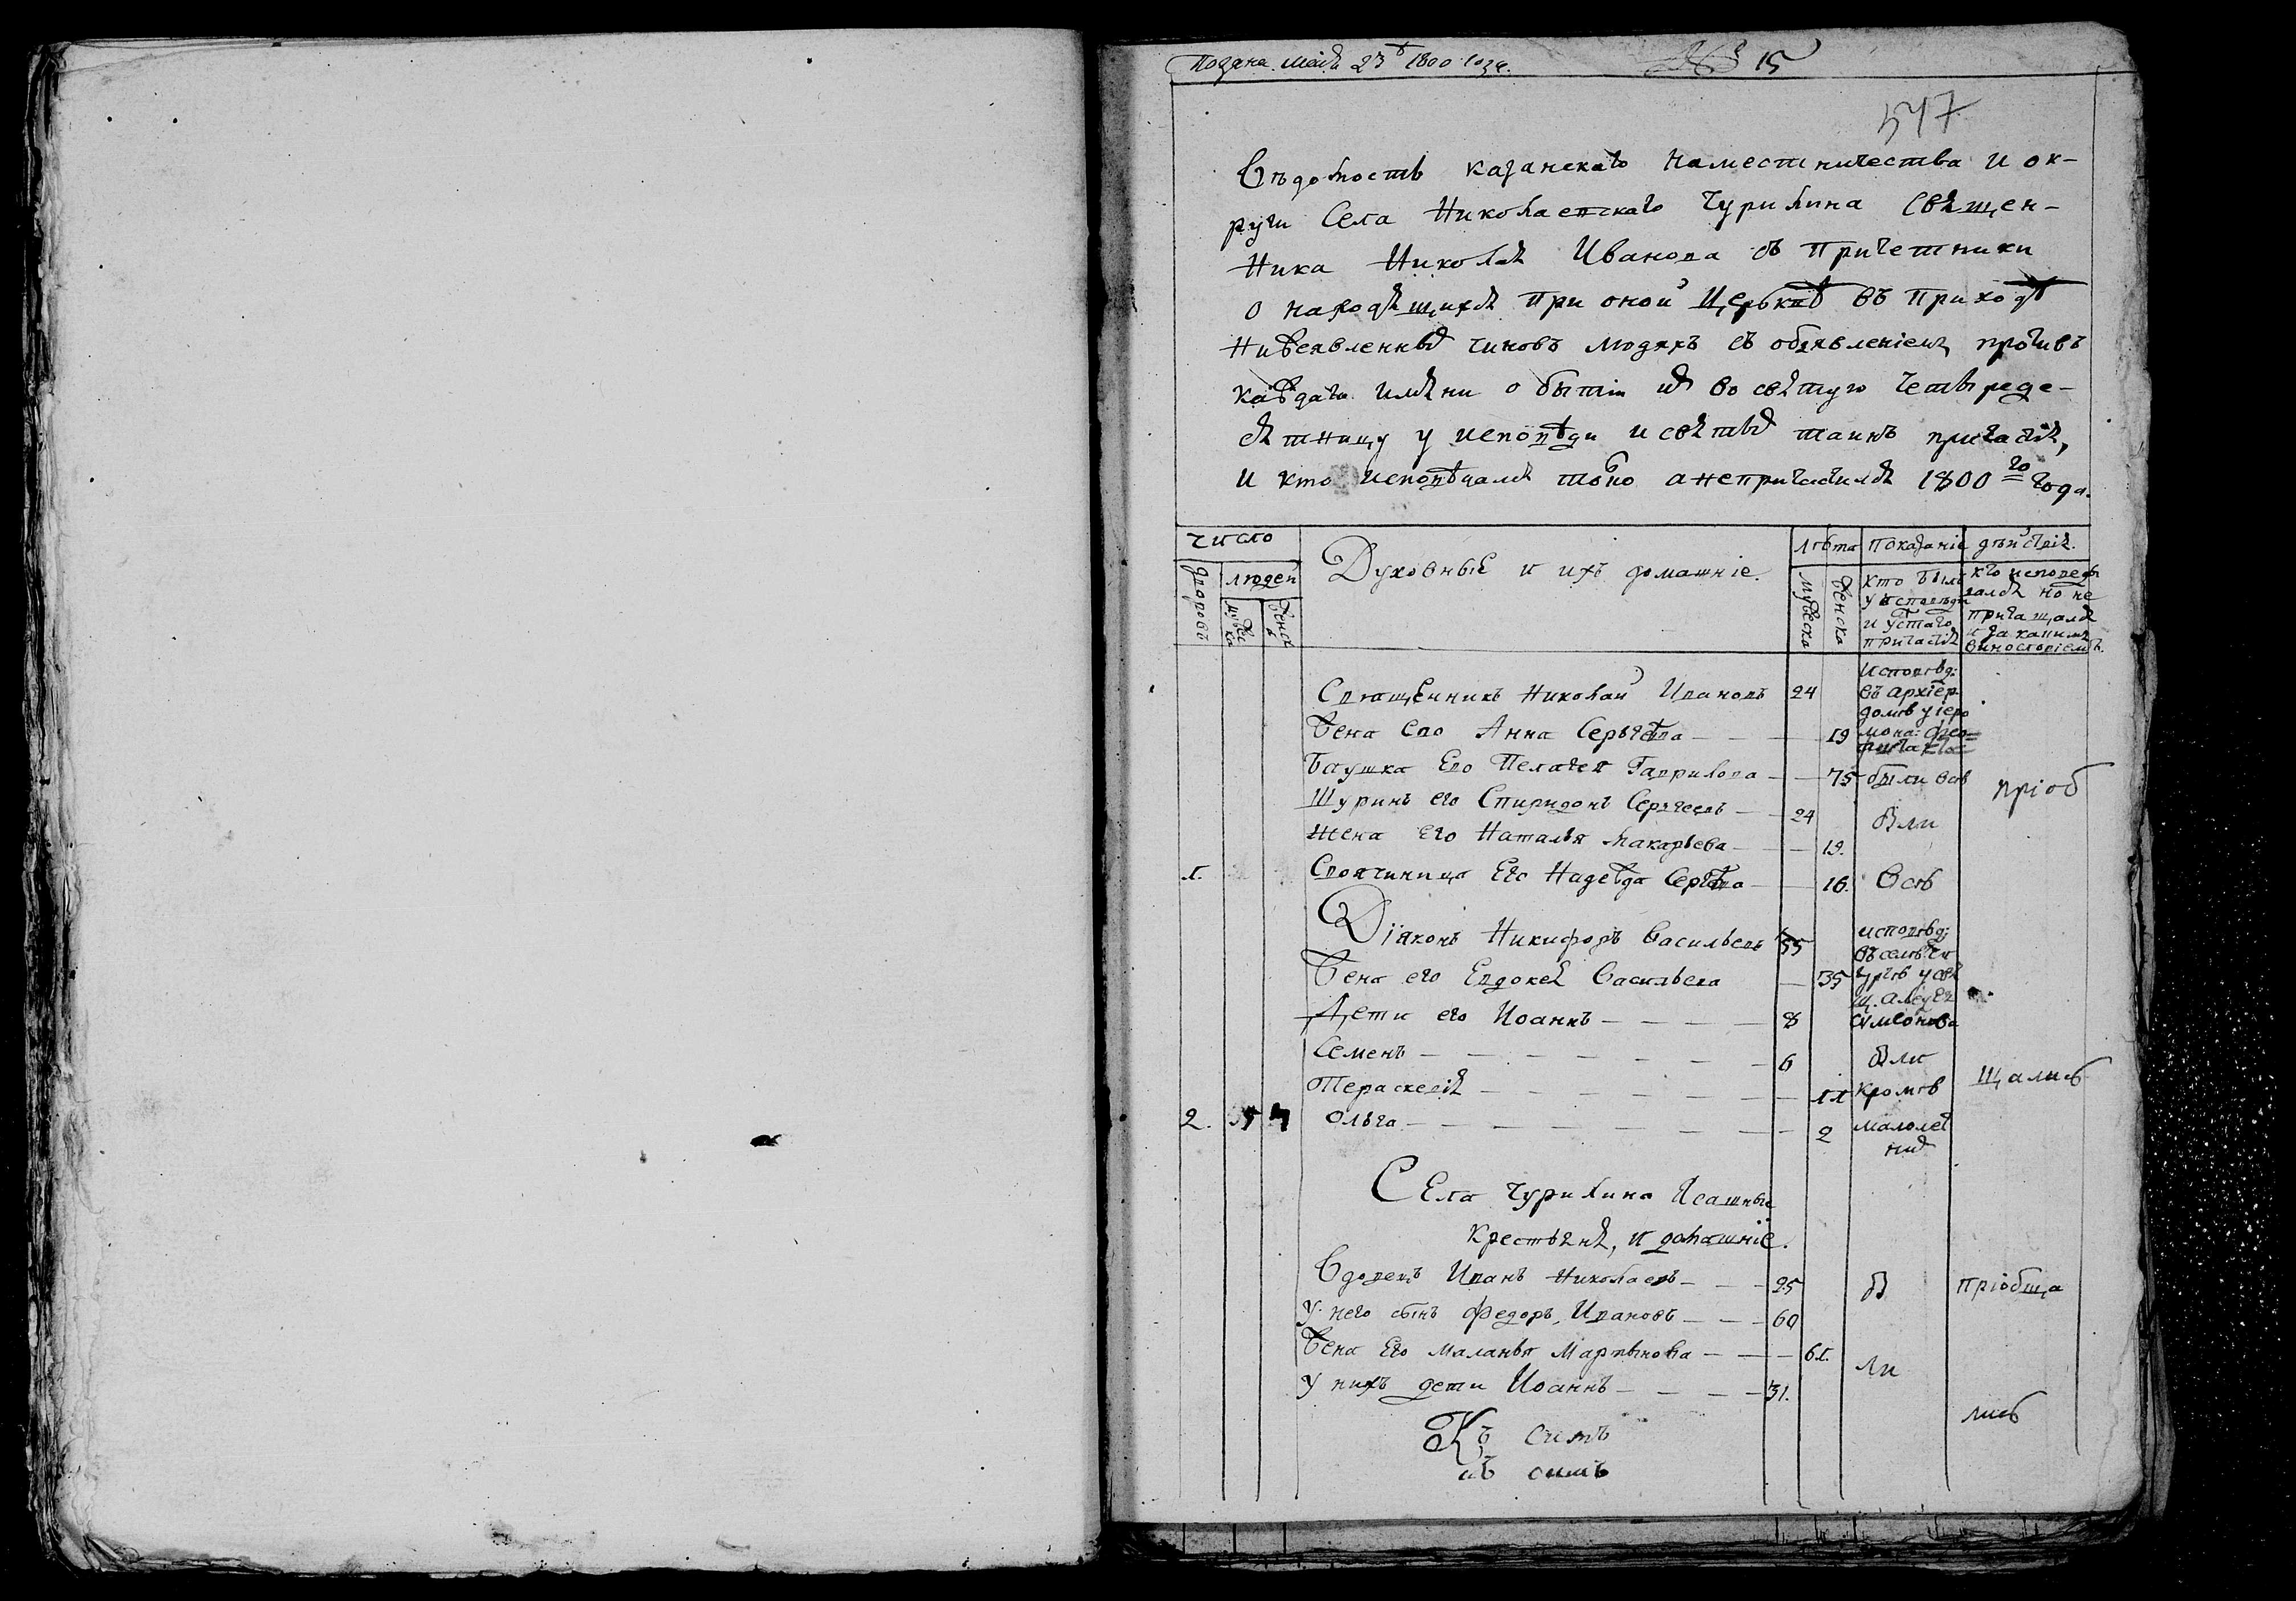 Подана маiя 23 1800 года.
№ 15
547
Вѣдомость казанскаго наместничества и ок-
руги Села Николаевскаго Чурилина Священ-
ника Николая Иванова съ причетники
о находящихся при оной церквѣ въ приходѣ
нижеявленныхъ чиновъ людяхъ съ объявленiемъ противъ
каждаго имяни о бытiи ихъ во святую четыреде-
сятницу у исповѣди и святыхъ таинъ причастiя,
и кто исповѣдался токмо а непричастился 1800го года.
число
людей
дворовъ
мужеска
женска
Духовныя и ихъ домашнiе.
лѣта
мужеска
женска
показанiе дѣйствiя.
кто былъ
у исповѣди
и устаго
причастiя
кто исповед
вался но не
причащался
и за каким
винословiемъ.
Священникъ Николай Ивановъ 24
исповѣд:
въ архiер
домѣ у iеро
мона:
Жена Его Анна Сергѣева 19
Баушка Его Пелагея Гаврилова 75 были всѣ
прiоб
Шуринъ его Спиридонъ Сергеевъ 24
Жена его Наталья Макарьева 19.
Были
1. Своячиница Его Надежда Сергѣева 16. Всѣ
Дiяконъ Никифоръ Васильевъ 35
исповѣд:
въ селѣ
Жена его Евдокея Васильева 35
Дети его Иоаннъ 8
Симеонова
Семенъ 6 были
Пераскевiя 11 кромѣ
щались
2. 5 7 Ольга 2 малолет
нихъ
Села Чурилина Ясашные
крестьяня, и домашнiе.
Вдовецъ Иванъ Николаевъ 95 бы прiобща
У него сынъ Федоръ Ивановъ 60
Жена Его Маланья Мартынова 61. ли
У нихъ дети Иоаннъ 31.
лись
Къ симъ